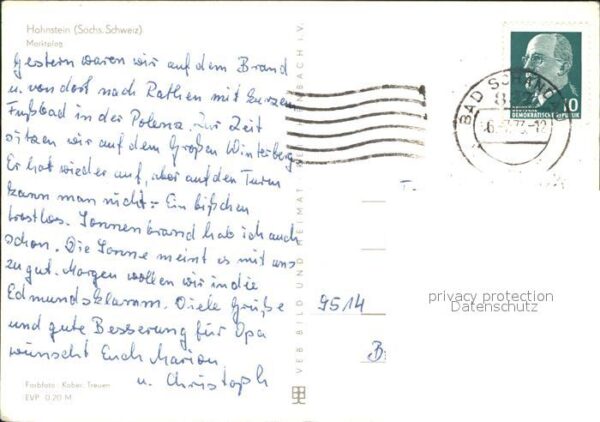 Hohnstein (Sächs. Schweiz)
Marktplatz
Gestern waren wir auf dem Brand
u. von dort nach Rathen mit kurzem
Fußbad in der Polenz. Zur Zeit
sitzen wir auf dem Großen Winterberg
Er hat wieder auf, aber auf den Turm
kann man nicht. – Ein bißchen
trostlos. Sonnenbrand hab ich auch
schon. Die Sonne meint es mit uns
zu gut. Morgen wollen wir in die
Edmundsklamm. Viele Grüße
und gute Besserung für Opa
wünscht Euch Marion
u. Christoph
Farbfoto: Kober, Treuen
EVP 0,20 M
VEB BILD UND HEIMAT REICHENBACH i. V.
BAD SCHANDAU
DEMOKRATISCHE REPUBLIK
10
9514
B
privacy protection
Datenschutz